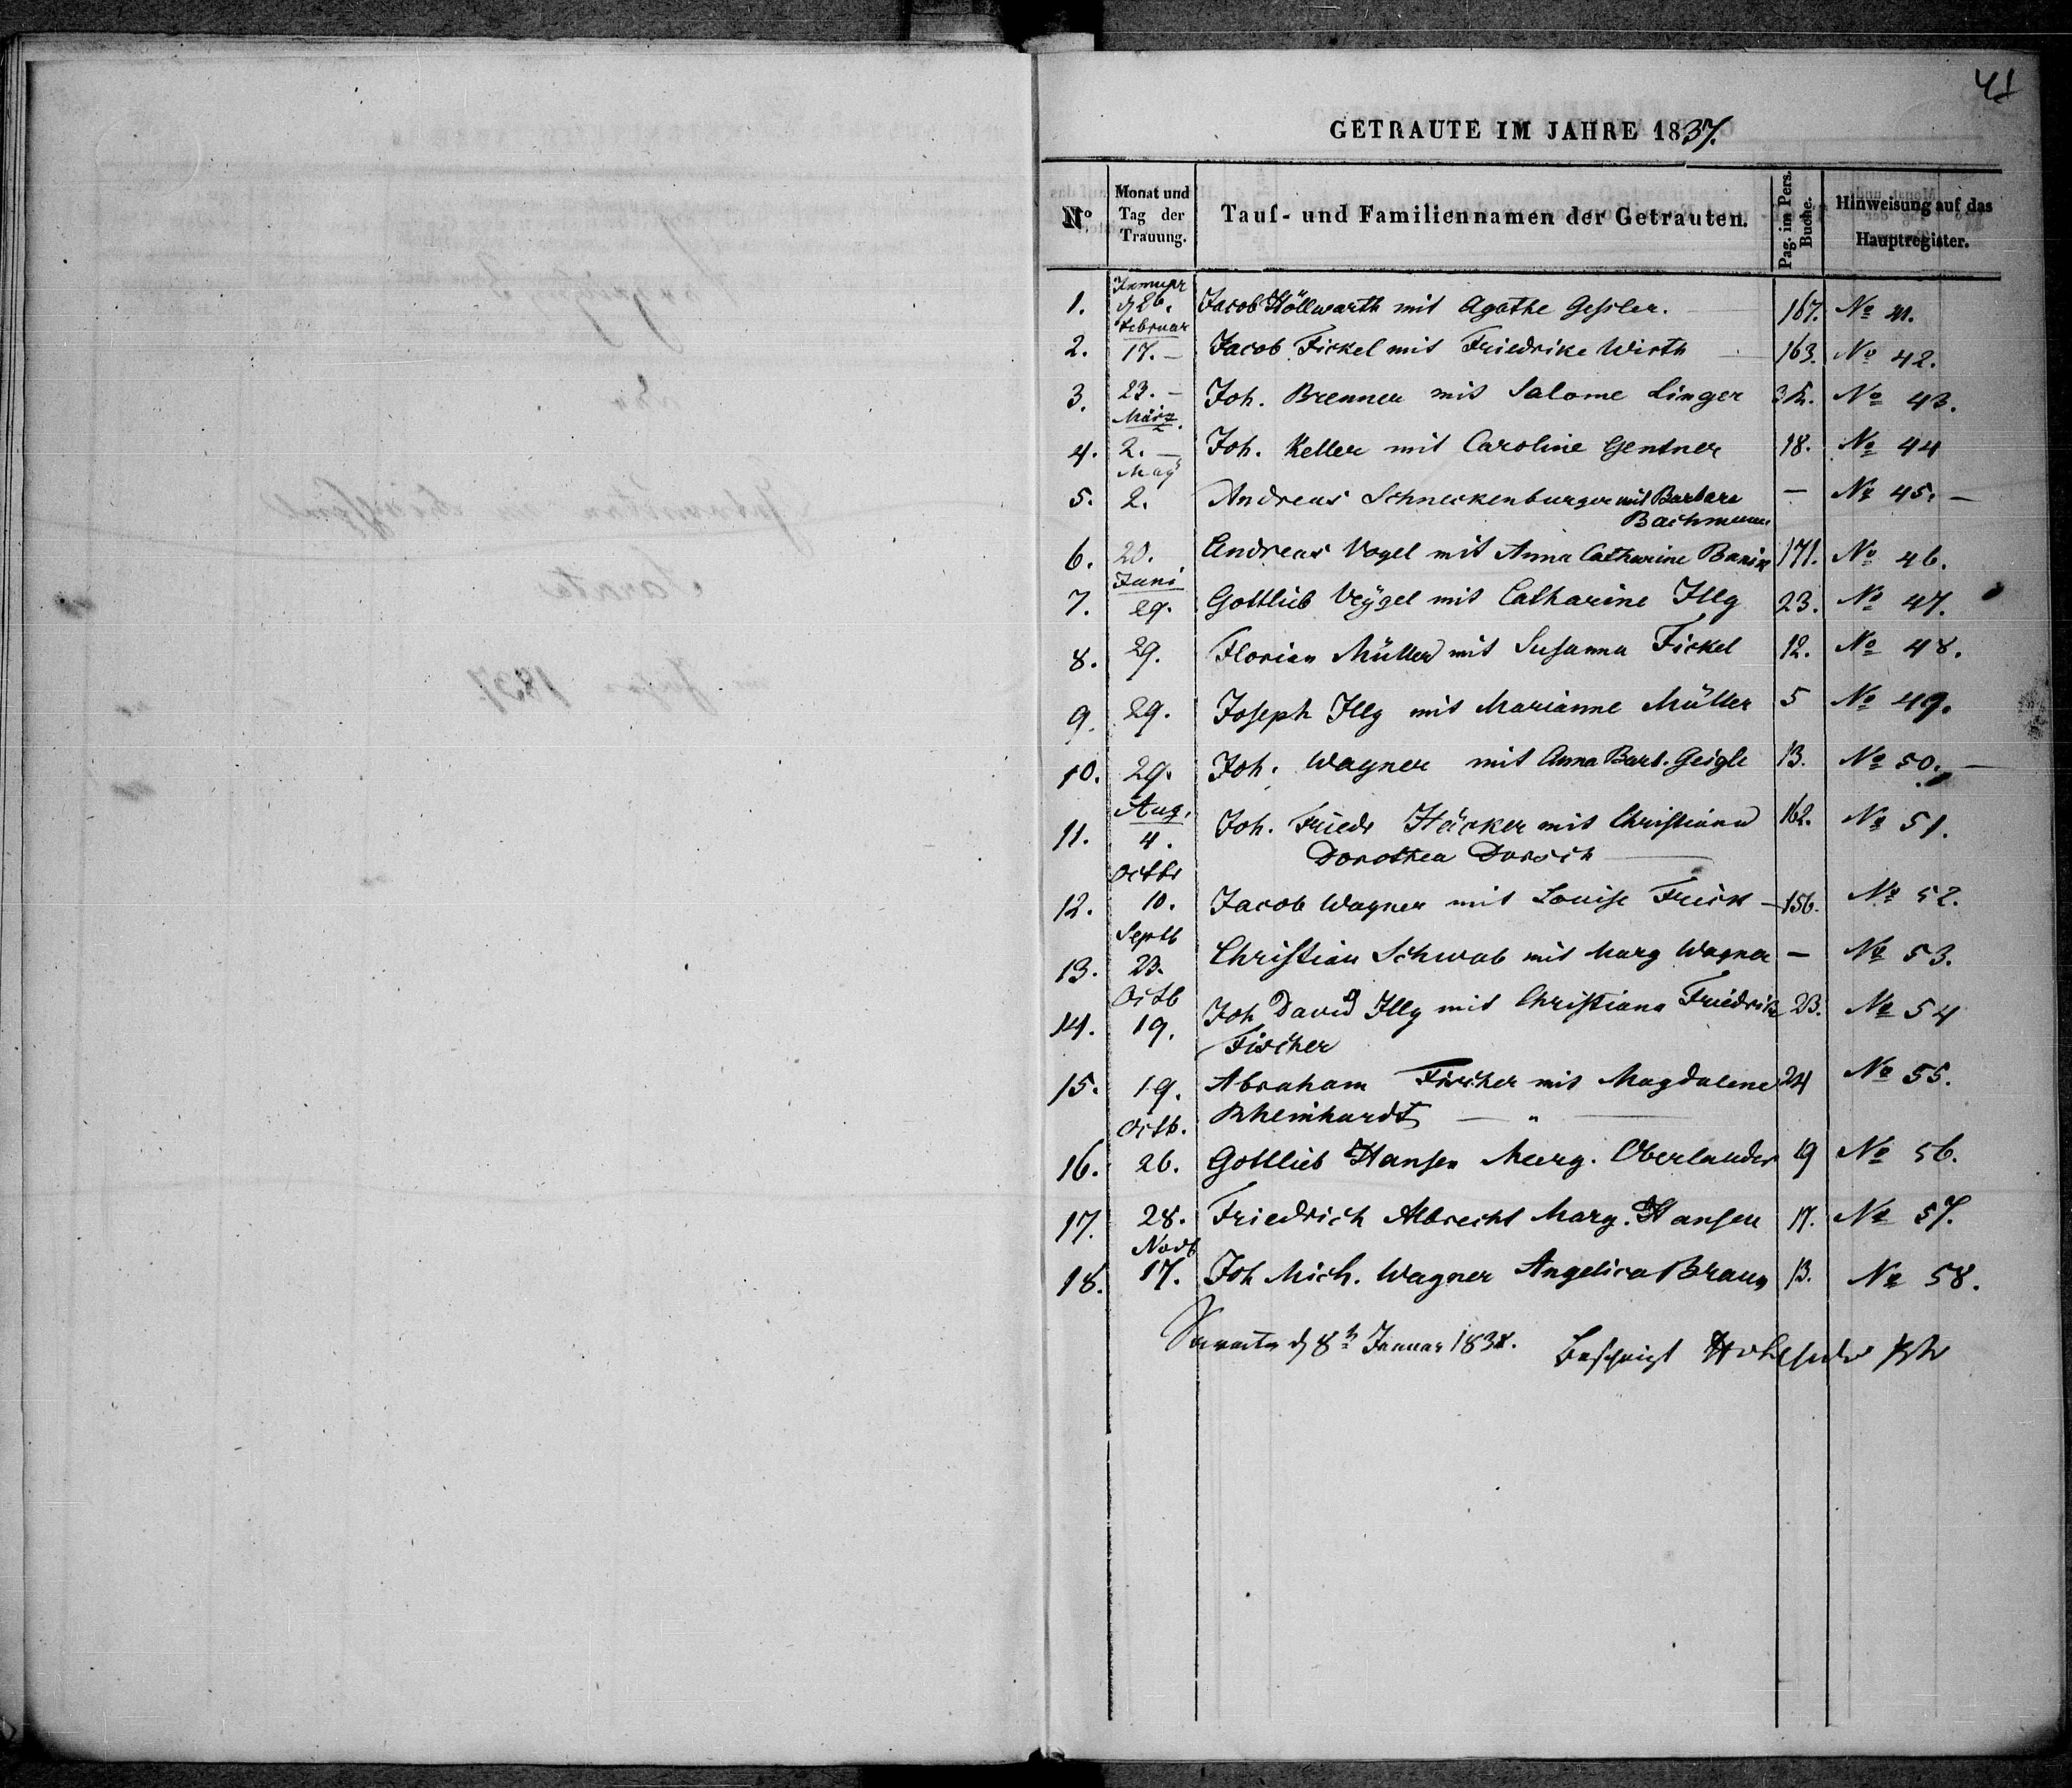 41
GETRAUTE IM JAHRE 1837.
No Monat und Tag der Trauung. Tauf- und Familiennamen der Getrauten. Pag. im Pers. Buche. Hinweisung auf das Hauptregister.
Januar
1. d 26. Jacob Höllwarth mit Agathe Gessler. 167. No 41.
Februar
2. 17. – Jacob Fickel mit Friedrike Wirth 163. No 42.
3. 23. – Joh. Brenner mit Salome Linger No 43.
März.
4. 2. – Joh. Keller mit Caroline Gentner 18. No 44
May
5. 2. Andreas Schneckenburger mit Barbara – No 45. –
Bachmann
6. 20. Andreas Vogel mit Anna Catharine 171. No 46.
Juni
7. 29. Gottlieb Veÿgel mit Catharine Illg 23. No 47.
8. 29. Florian Müller mit Susanna Fickel 12. No 48.
9. 29. Joseph Illg mit Marianne Müller 5 No 49.
10. 29. Joh. Wagner mit Anna Barb. Geigle 13. No 50. –
Aug.
11. 4. Joh. Friedr Häcker mit Christiana 162. No 51.
Dorothea Dorsch
Octbr
12. 10. Jacob Wagner mit Louise Frick – 156. No 52.
Septb
13. 23. Christian Schwab mit Marg Wagner – No 53.
Octb
14. 19. Joh David Illg mit Christiana Friedrike 23. No 54
Fischer
15. 19. Abraham Fischer mit Magdalene 24 No 55.
Rheinhardt – " –
Octb.
16. 26. Gottlieb Hansen Marg. Oberlander 19 No 56.
17. 28. Friedrich Albrecht Marg. Hansen 17. No 57.
Novb
18. 17. Joh Mich. Wagner Angelica Braun 13. No 58.
Sarata d 8n Januar 1838. Bescheinigt